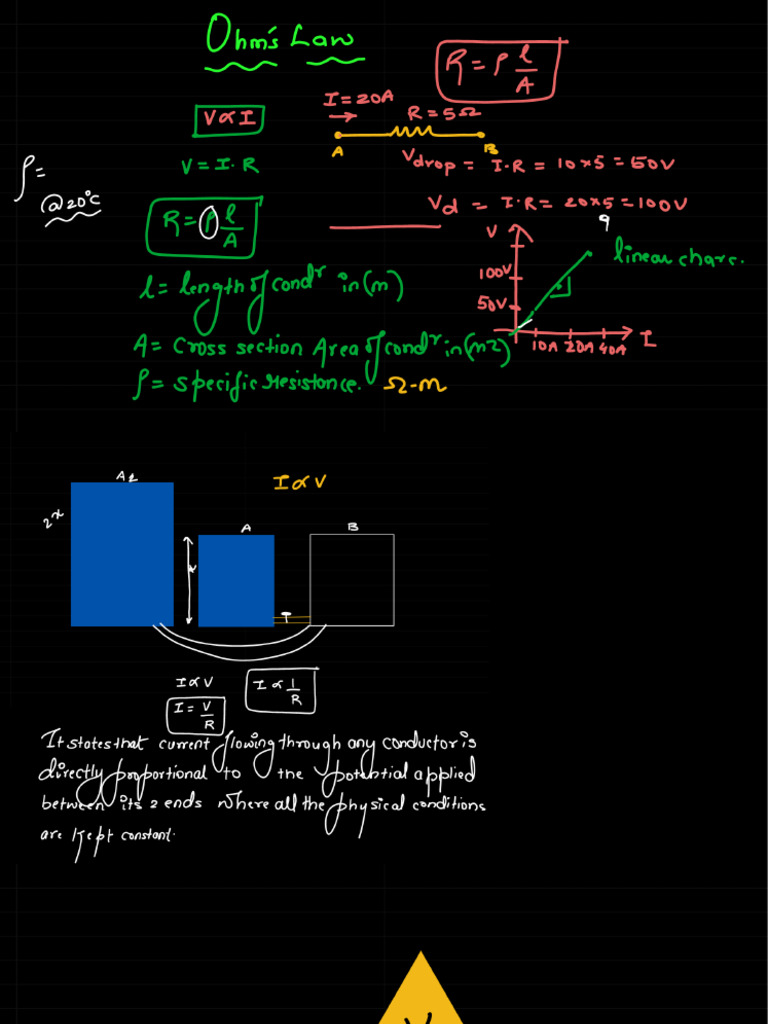 Ohm's Law
R = ρ l/A
V ∝ I
I = 20A
R = 5Ω
A B
V = I·R
Vdrop = I·R = 10×5 = 50V
ρ =
@20°C
Vd = I·R = 20×5 = 100V
R = ρ l/A
V
linear chars.
100V
50V
10A 20A 40A I
l = length of condr in (m)
A = Cross section Area of condr in (m2)
ρ = Specific resistance. Ω-m
I ∝ V
A B
2x
x
T
I ∝ V
I ∝ 1/R
I = V/R
It states that current flowing through any conductor is
directly proportional to the potential applied
between its 2 ends where all the physical conditions
are kept constant.